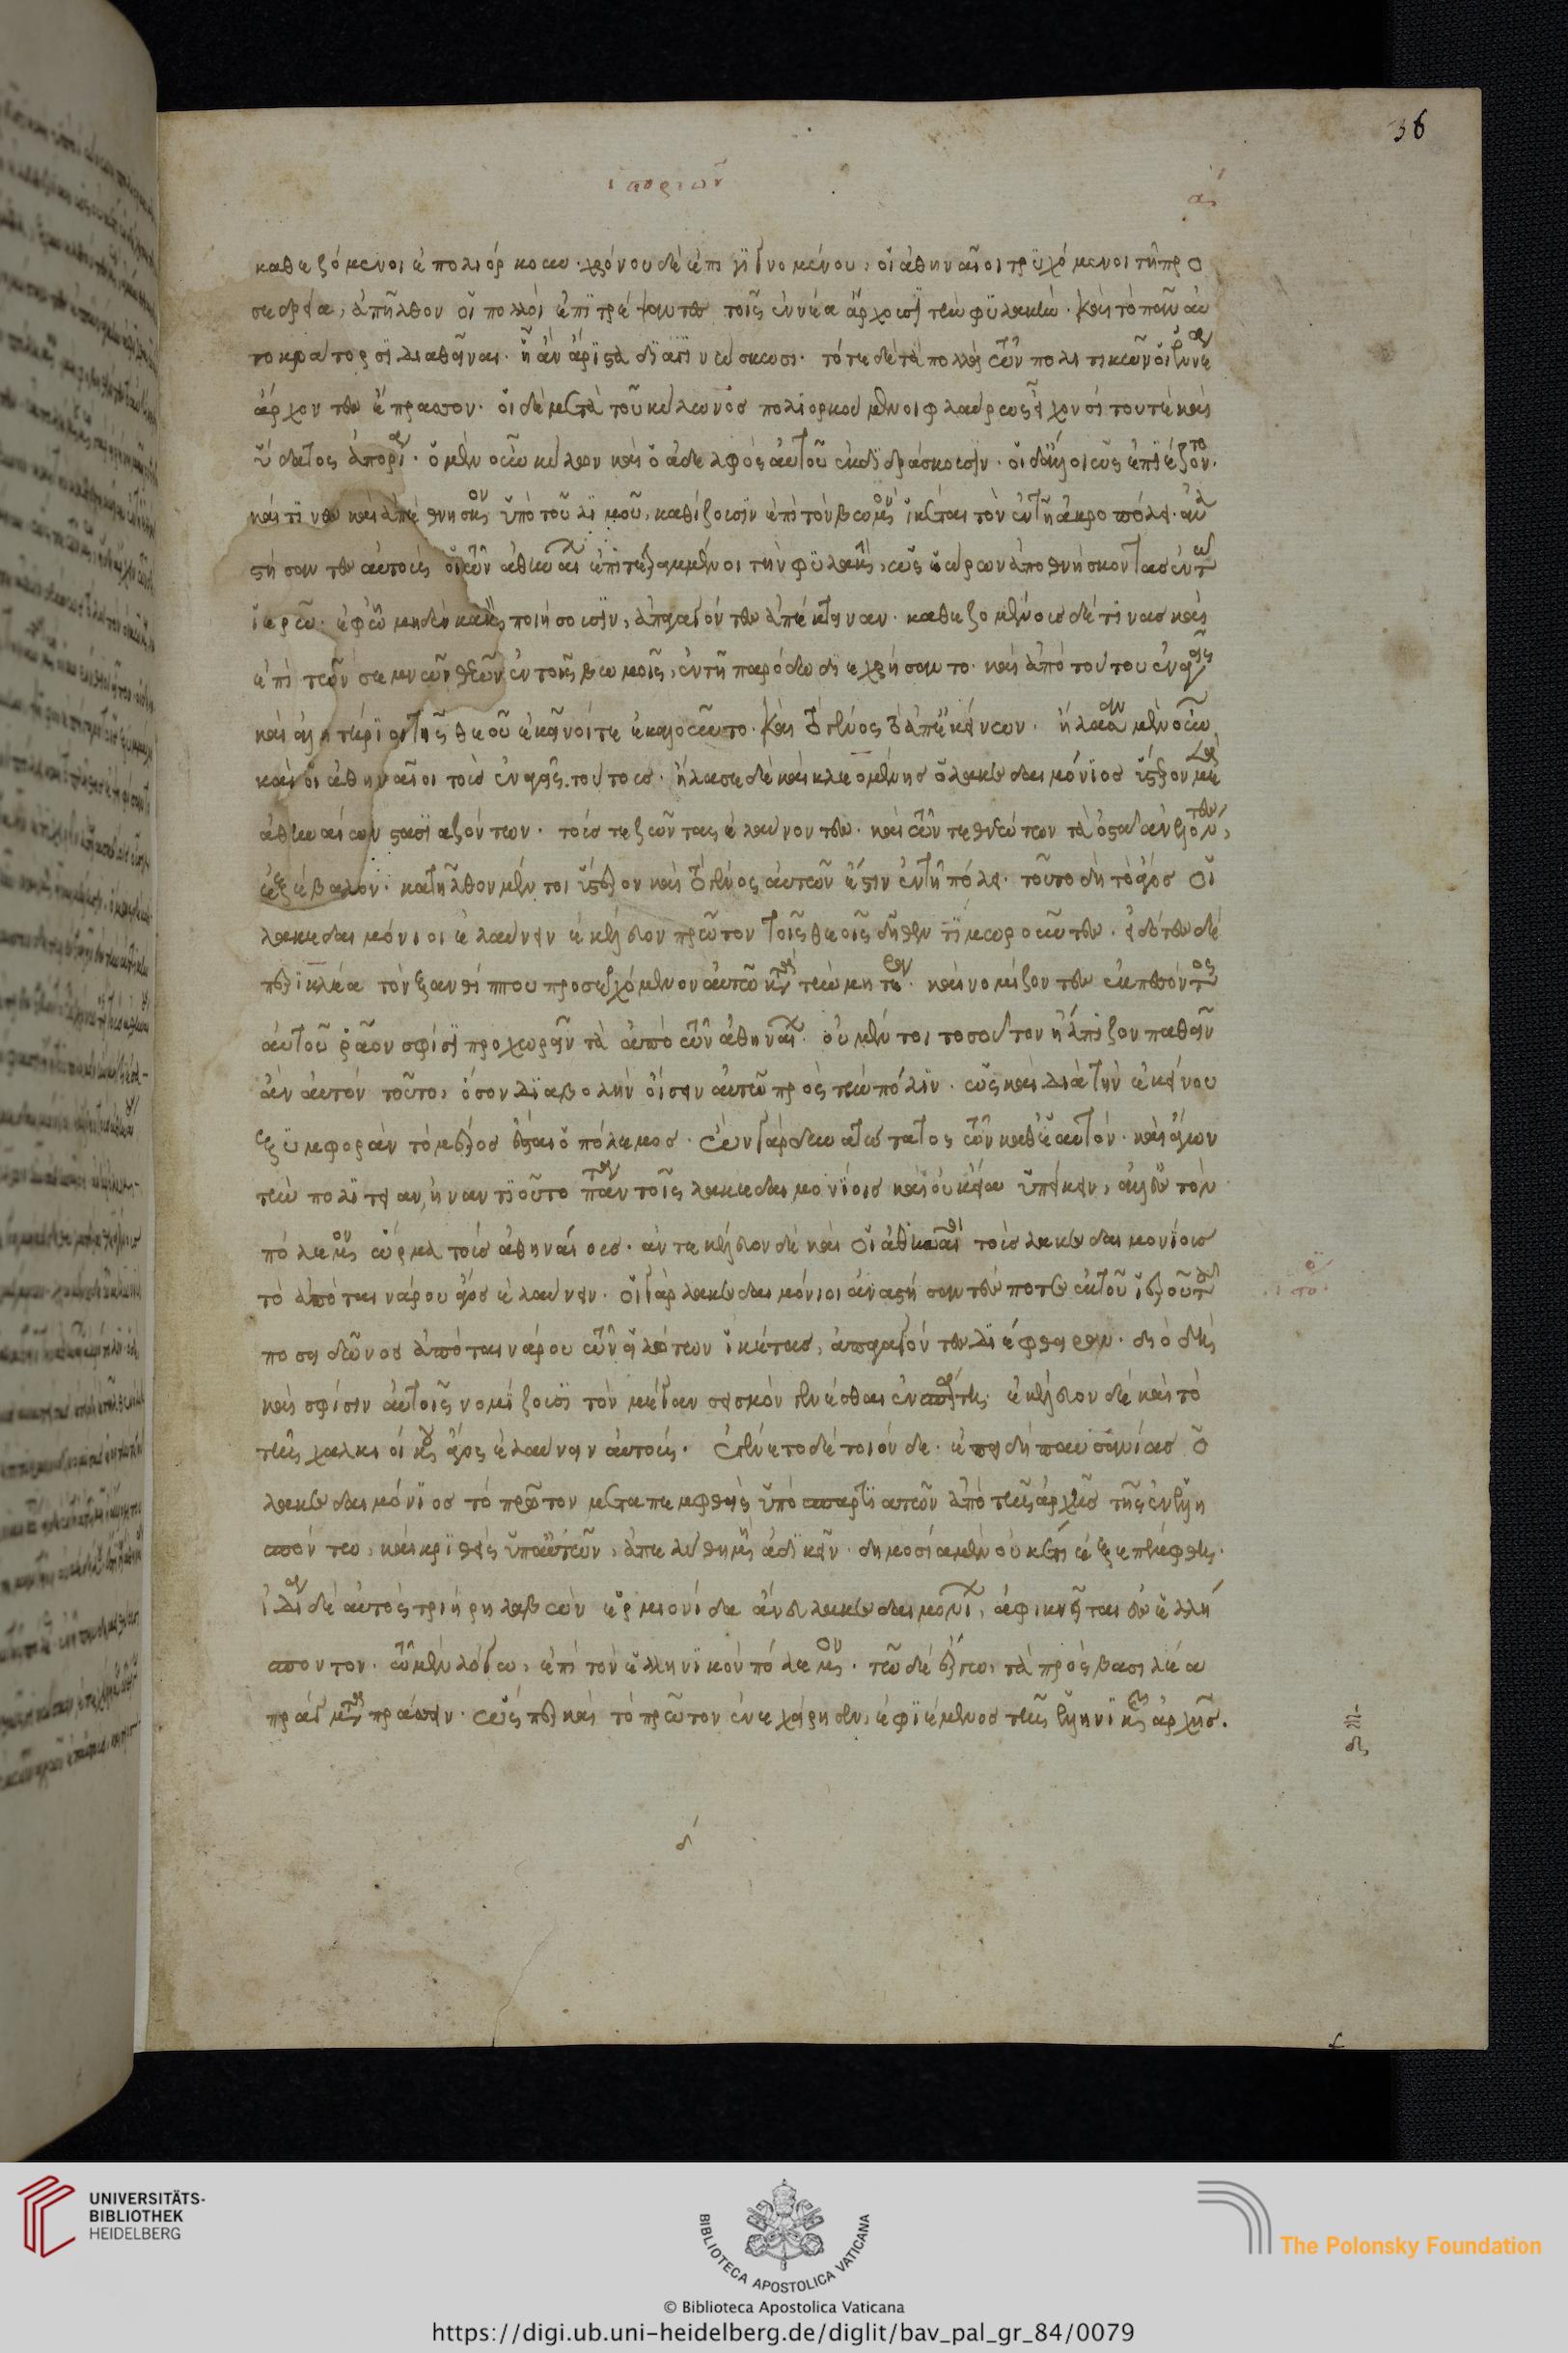 36
ἱστοριῶν
α
καθεζόμενοι ἐπολιόρκουν· χρόνου δὲ ἐπιγιγνομένου, οἱ ἀθηναῖοι τρυχόμενοι τῆ προ
σεδρεία, ἀπῆλθον οἱ πολλοὶ ἐπιτρέψαντες τοῖς ἐννέα ἄρχουσι τὴν φυλακὴν· καὶ τὸ πᾶν αὐ
τοκράτορσι διαθεῖναι· ἧ ἂν ἄριστα διαγινώσκωσι· τότε δὲ τὰ πολλὰ τῶν πολιτικῶν οἱ ἐννέα
ἄρχοντες ἔπρασσον· οἱ δὲ μετὰ τοῦ κύλωνος πολιορκούμενοι φλαύρως εἶχον σίτου τὲ καὶ
ὕδατος ἀπορία· ὁ μὲν οὖν κύλων καὶ ὁ ἀδελφὸς αὐτοῦ ἐκδιδράσκουσιν· οἱ δ' ἄλλοι ὡς ἐπιέζοντο·
καί τινες καὶ ἀπέθνησκον ὑπὸ τοῦ λιμοῦ, καθίζουσιν ἐπὶ τὸν βωμὸν ἱκέται τὸν ἐν τῆ ἀκροπόλει· ἀνα
στήσαντες αὐτοὺς οἱ τῶν ἀθηναίων ἐπιτετραμμένοι τὴν φυλακὴν, ὡς ἑώρων ἀποθνήσκοντας ἐν τῶ
ἱερῶ· ἐφ' ὧ μηδὲν κακὸν ποιήσουσιν, ἀπαγαγόντες ἀπέκτειναν· καθεζομένους δέ τινας καὶ
ἐπὶ τῶν σεμνῶν θεῶν ἐν τοῖς βωμοῖς, ἐν τῆ παρόδω διεχρήσαντο· καὶ ἀπὸ τούτου ἐναγεῖς
καὶ ἀλητήριοι τῆς θεοῦ ἐκεῖνοί τε ἐκαλοῦντο· καὶ τὸ γένος τὸ ἀπ' ἐκείνων· ἤλασαν μὲν οὖν
καὶ οἱ ἀθηναῖοι τοὺς ἐναγεῖς τούτους· ἤλασε δὲ καὶ κλεομένης ὁ λακεδαιμόνιος ὕστερον μετὰ
ἀθηναίων στασιαζόντων· τούς τε ζῶντας ἐλαύνοντες· καὶ τῶν τεθνεώτων τὰ ὀστᾶ ἀνελόντες,
ἐξέβαλον· κατῆλθον μέντοι ὕστερον καὶ τὸ γένος αὐτῶν ἔστιν ἐν τῆ πόλει· τοῦτο δὴ τὸ ἄγος οἱ
λακεδαιμόνιοι ἐλαύνειν ἐκέλευον πρῶτον τοῖς θεοῖς δῆθεν τιμωροῦντες· εἰδότες δὲ
περικλέα τὸν ξανθίππου προσεχόμενον αὐτῶ κατὰ τὴν μητέρα· καὶ νομίζοντες ἐκπεσόντος
αὐτοῦ ῥᾶον σφίσι προχωρεῖν τὰ ἀπὸ τῶν ἀθηναίων· οὐ μέντοι τοσοῦτον ἤλπιζον παθεῖν
ἂν αὐτὸν τοῦτο, ὅσον διαβολὴν οἴσειν αὐτῶ πρὸς τὴν πόλιν· ὡς καὶ διὰ τὴν ἐκείνου
ξυμφορὰν τὸ μέρος ἔσται ὁ πόλεμος· ὢν γὰρ δυνατώτατος τῶν καθ' ἑαυτὸν· καὶ ἄγων
τὴν πολιτείαν, ἠναντιοῦτο πάντα τοῖς λακεδαιμονίοις καὶ οὐκ εἴα ὑπείκειν, ἀλλ' ἐς τὸν
πόλεμον ὥρμα τοὺς ἀθηναίους· ἀντεκέλευον δὲ καὶ οἱ ἀθηναῖοι τοὺς λακεδαιμονίους
τὸ ἀπὸ ταινάρου ἄγος ἐλαύνειν· οἱ γὰρ λακεδαιμόνιοι ἀναστήσαντές ποτε ἐκ τοῦ ἱεροῦ τοῦ
ποσειδῶνος ἀπὸ ταινάρου τῶν εἱλώτων ἱκέτας, ἀπαγαγόντες διέφθειραν· διὸ δὴ
καὶ σφίσιν αὐτοῖς νομίζουσι τὸν μέγαν σεισμὸν γενέσθαι ἐν σπάρτη· ἐκέλευον δὲ καὶ τὸ
τῆς χαλκιοίκου ἄγος ἐλαύνειν αὐτούς· ἐγένετο δὲ τοιόνδε· ἐπειδὴ παυσανίας ὁ
λακεδαιμόνιος τὸ πρῶτον μεταπεμφθεὶς ὑπὸ σπαρτιατῶν ἀπὸ τῆς ἀρχῆς τῆς ἐν ἑλλη
σπόντω, καὶ κριθεὶς ὑπ' αὐτῶν, ἀπελύθη μὴ ἀδικεῖν· δημοσία μὲν οὐκέτι ἐξεπέμφθη·
ἰδία δὲ αὐτὸς τριήρη λαβὼν ἑρμιονίδα ἄνευ λακεδαιμονίων, ἀφικνεῖται ἐς ἑλλή
σποντον· τῶ μὲν λόγω, ἐπὶ τὸν ἑλληνικὸν πόλεμον· τῶ δὲ ἔργω, τὰ πρὸς βασιλέα
πράγματα πράσσειν· ὥσπερ καὶ τὸ πρῶτον ἐνεχείρησεν, ἐφιέμενος τῆς ἑλληνικῆς ἀρχῆς.
δ
UNIVERSITÄTS-
BIBLIOTHEK
HEIDELBERG
BIBLIOTECA APOSTOLICA VATICANA
The Polonsky Foundation
© Biblioteca Apostolica Vaticana
https://digi.ub.uni-heidelberg.de/diglit/bav_pal_gr_84/0079